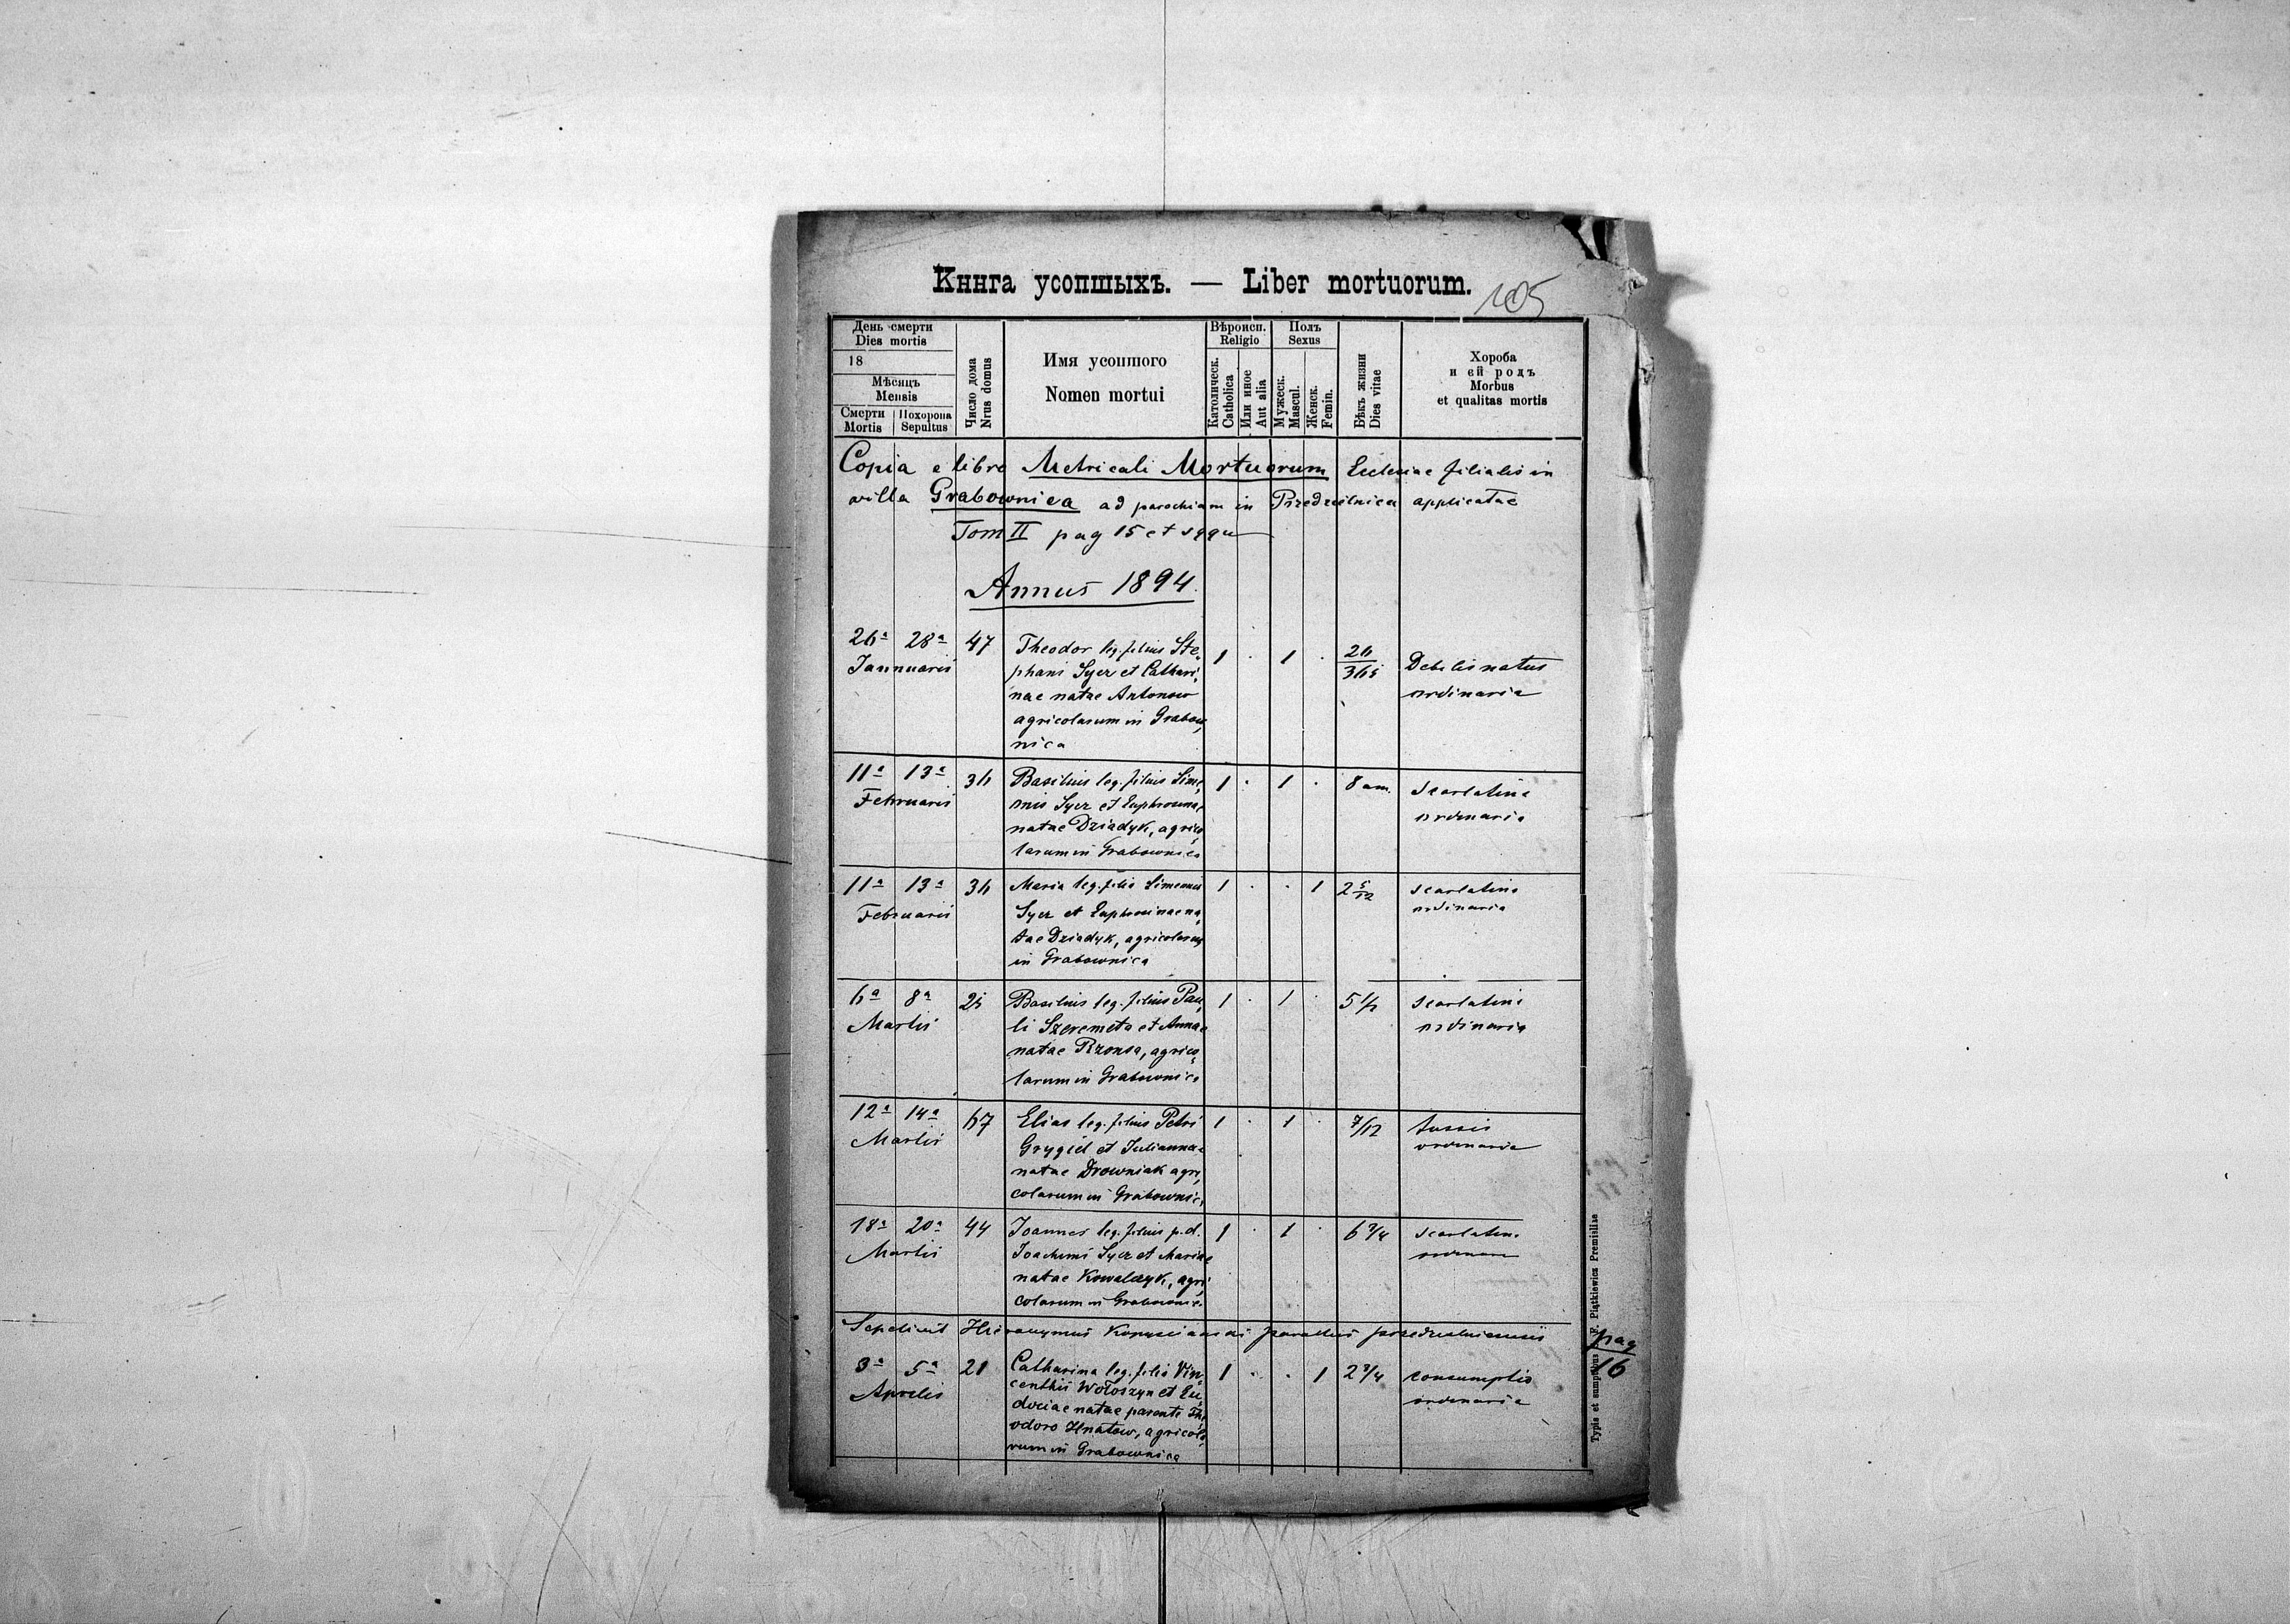 Книга усопшыхъ. — Liber mortuorum.
105
День смерти
Dies mortis
18
Мѣсяцъ
Mensis
Смерти
Mortis
Похорона
Sepultus
Число дома
Nrus domus
Имя усопшого
Nomen mortui
Вѣроисп.
Religio
Католическ.
Catholica
Или иное
Aut alia
Полъ
Sexus
Мужеск.
Mascul.
Женск.
Femin.
Вѣкъ жизни
Dies vitae
Хороба
и ей родъ
Morbus
et qualitas mortis
Copia e libro Metricali Mortuorum Ecclesiae filialis in
villa Grabownica ad parochiam in Przedzielnica applicatae
Tom II pag 15 et sqqu
Annus 1894.
26ª 28ª 47
Januuarii
Theodor leg. filius Ste,
phani Syez et Cathari,
nae natae Antonow
agricolarum in Grabow,
nica
1 . 1 . 26/365
Debilis natus
ordinaria
11ª 13ª 36
Februarii
Basilius leg. filius Sime,
onis Syez et Euphrosinae
natae Dziadyk, agrico,
larum in Grabownica
1 . 1 . 8 am.
scarlatina
ordinaria
11ª 13ª 36
Februarii
Maria leg. filia Simeonis
Syez et Euphrosinae na,
tae Dziadyk, agricolarum
in Grabownica
1 . . 1 2 5/12
scarlatina
ordinaria
6ª 8ª 25
Martii
Basilius leg. filius Pau,
li Szeremeta et Annae
natae Rzonsa, agrico,
larum in Grabownica
1 . 1 . 5 1/2
scarlatina
ordinaria
12ª 14ª 67
Martii
Elias leg. filius Petri
Grygiel et Juliannae
natae Drowniak agri,
colarum in Grabownica
1 . 1 . 7/12
tussis
ordinaria
18ª 20ª 44
Martii
Joannes leg. filius p.d.
Joachimi Syez et Mariae
natae Kowalczyk, agri,
colarum in Grabownica
1 . 1 . 6 3/4
scarlatina
Sepelivit Hieronymus parochus
pag
16
3ª 5ª 21
Aprilis
Catharina leg. filia Vin,
centii Wołoszyn et Eu,
dociae natae parente The,
odoro Hnatow, agricola,
rum in Grabownica
1 . . 1 2 3/4
consumptio
ordinaria
Typis et sumptibus S. F. Piątkiewicz Premisliae